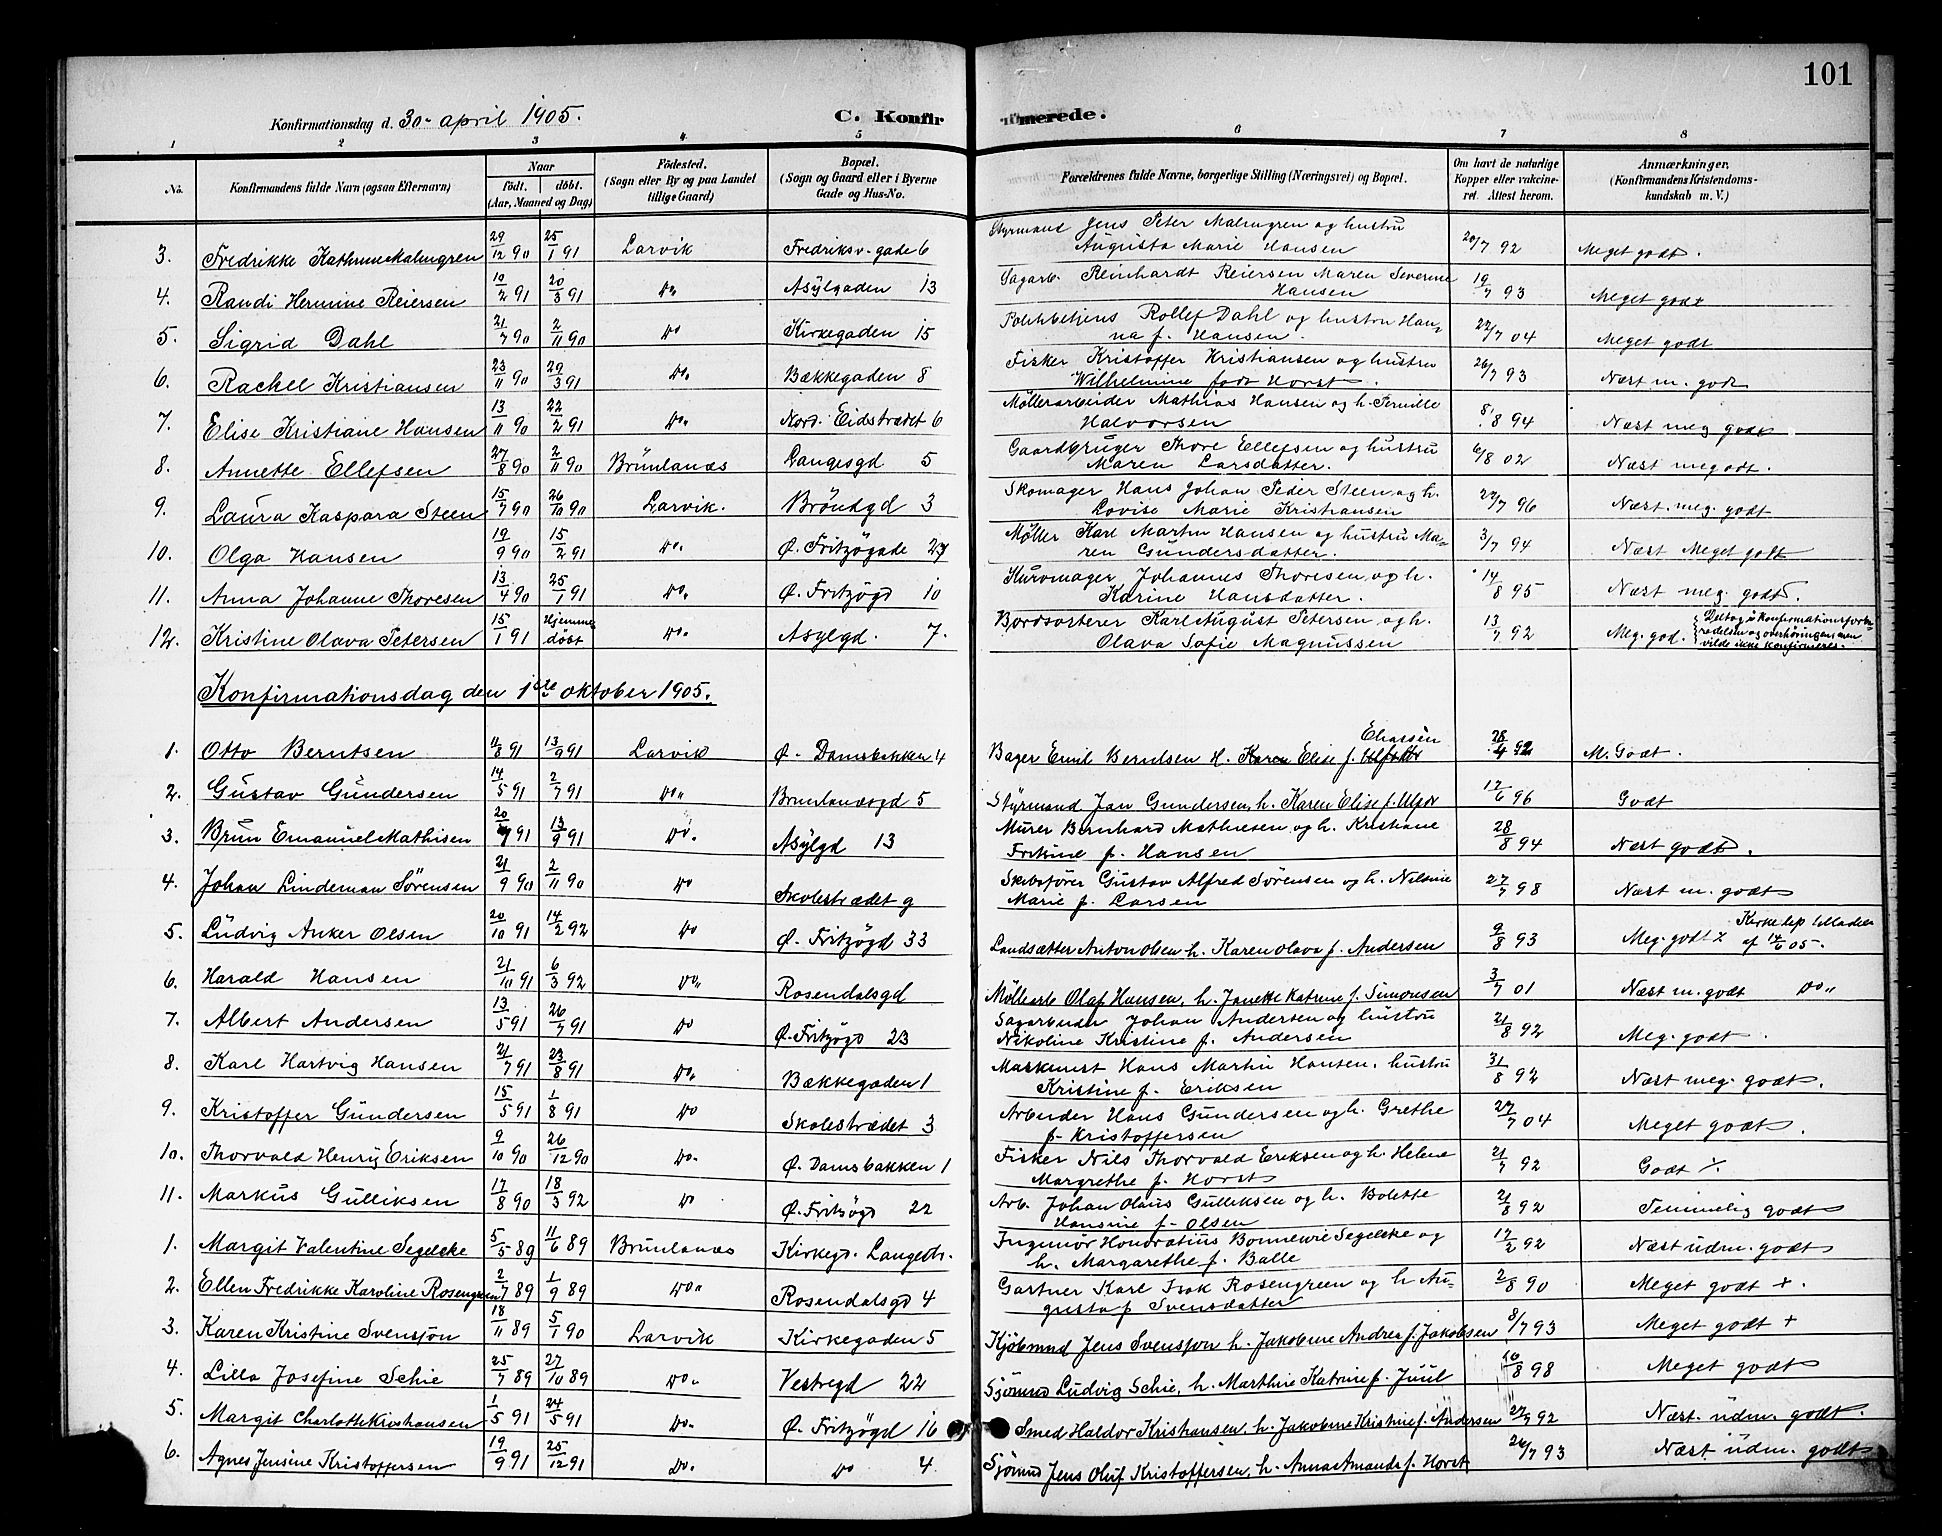 101
Konfirmationsdag d. 30- april 1905.
C. Konfirmerede.
1 2 3 4 5 6 7 8
No. Konfirmandens fulde Navn (ogsaa Efternavn) Naar födt. döbt. (Aar, Maaned og Dag) Födested. (Sogn eller By og paa Landet tillige Gaard) Bopæl. (Sogn og Gaard eller i Byerne Gade og Hus-No. Forældrenes fulde Navne, borgerlige Stilling (Næringsvei) og Bopæl. Om havt de naturlige Kopper eller vakcineret. Attest herom. Anmærkninger. (Konfirmandens Kristendomskundskab m. V.)
3. Fredrikke Kathrine Malmgren 29/12 90 25/1 91 Larvik Fredriksv. gade 6 Styrmand Jens Peter Malmgren og hustru Augusta Marie Hansen 20/7 92 Meget godt.
4. Randi Hermine Reiersen 19/2 91 20/3 91 Do Asylgaden 13 Sagarb. Reinhardt Reiersen Maren Severine Hansen 19/7 93 Meget godt
5. Sigrid Dahl 21/7 90 2/11 90 Do Kirkegaden 15 Politibetjent Rollef Dahl og hustru Hanna f. Hansen. 22/7 04 Meget godt
6. Rachel Kristiansen 23/11 90 29/3 91 Do. Bækkegaden 8 Fisker Kristoffer Kristiansen og hustru Wilhelmine født Horst. 26/7 93 Næst m. godt
7. Elise Kristiane Hansen 13/11 90 22/2 91 Do. Nord. Eidstrædet 6 Møllerarbeider Mathias Hansen og h. Pernille Halvorsen 8/8 94 Næst meg godt
8. Annette Ellefsen 27/8 90 2/11 90 Brünlanæs Langesgd 5 Gaardbruger Thore Ellefsen og hustru Maren Larsdatter. 6/8 02 Næst meg odt.
9. Laura Kaspara Steen 15/7 90 26/10 90 Larvik. Bröndgd 3 Skomager Hans Johan Peder Steen og h. Lovise Marie Kristiansen 22/7 96 Næst. meg. godt
10. Olga Hansen 19/9 90 15/2 91 Do. Ø. Fritzögade 27 Møller Karl Martin Hansen og hustru Maren Gundersdatter. 3/7 94 Næst Meget godt
11. Anna Johanne Thoresen 13/4 90 25/1 91 Do. Ø. Fritzögd 10 Kurvmager Johannes Thoresen og h. Karine Hansdatter. 14/8 95 Næst meg. godt.
12. Kristine Olava Petersen 15/1 91 Hjemmedöbt Do. Asylgd. 7. Bordsorterer Karl August Petersen og h. Olava Sofie Magnussen 13/7 92 Meg. god. Deltog i Konfirmationsforberedelsen og overhøringen men vilde ikke konfirmeres.
Konfirmationsdag den 1ste oktober 1905.
1. Otto Berntsen 11/8 91 13/9 91 Larvik Ø. Damsbakken 4 Bager Emil Berntsen h. Karen Elise f. Eliassen 28/4 92 M. Godt.
2. Gustav Gündersen 14/5 91 2/7 91 Do. Brunlanæsgd 5 Styrmand Jan Gundersen, h. Karen Elise f. 17/6 96 Godt
3. Brün Emanuel Mathisen 20/7 91 13/9 91 Do. Asylgd 13 Murer Bernhard Mathiesen og h. Kristiane Fritzine f. Hansen 28/8 94 Næst godt.
4. Johan Lindeman Sörensen 21/9 90 2/11 90 Do Skolestrædet 9 Skibsfører Gustav Alfred Sørensen og h. Nilsine Marie f. Larsen 27/7 98 Næst m. godt
5. Lüdvig Anker Olsen 20/10 91 14/2 92 Do Ø. Fritzögd 33 Landsætter Anton Olsen h. Karen Olava f. Andersen 9/8 93 Meg. godt X Kirkelig tilladelse af 14/6 05.
6. Harald Hansen 21/10 91 6/3 92 Do. Rosendalsgd Møllearb Olaf Hansen, h. Janette Katrine f. Simonsen 3/7 01 Næst m. godt Do.
7. Albert Andersen 13/5 91 26/7 91 Do Ø. Fritzögd 23 Sagarbeider Johan Andersen og hustru Nikoline Kristine f. Andersen 21/8 92 Meg. godt
8. Karl Hartvig Hansen 21/7 91 23/8 91 Do. Bækkegaden 1 Maskinist Hans Martin Hansen. hustru Kristine f. Eriksen 31/8 92 Næst meg. godt.
9. Kristoffer Gündersen 15/5 91 1/8 91 Do Skolestrædet 3 Arbeider Hans Gundersen og h. Grethe f. Kristoffersen 27/7 04 Meget godt.
10. Thorvald Henry Eriksen 9/10 90 26/12 90 Do. Ø. Damsbakken 1 Fisker Nils Thorvald Eriksen og h. Helene Margrethe f. Horst 21/7 92 Godt
11. Markus Gulliksen 17/8 90 18/3 92 Do Ø. Fritzögd 22 Arb. Johan Olaus Gulliksen og h. Bolette Hansine f. Olsen 21/8 92 Temmelig godt
1. Margit Valentine Segelcke 5/5 89 11/6 89 Brünlanæs Kirkegd. Langestr. Ingeniør Honoratius Bonnevie Segelcke og h. Margarethe f. Balle 17/2 92 Næst udm. godt
2. Ellen Fredrikke Karoline Rosengreen 2/7 89 1/9 89 Do. Rosendalsgd 4 Gartner Karl Isak Rosengreen og h Augusta f Svensdatter 2/8 90 Meget godt +.
3. Karen Kristine Svensjön 18/11 89 5/1 90 Larvik Kirkegaden 5 Kjöbmnd Jens Svensjon h. Jakobine Andrea f. Jakobsen 8/7 93 Meget godt +
4. Lilla Josefine Schie 25/7 89 27/10 89 Do. Vestregd 22 Sjömnd Ludvig Schie, h. Marthie Katrine f. Juul 16/8 98 Meget godt
5. Margit Charlotte Kristiansen 1/5 91 24/5 91 Do. Ø. Fritzögd 16 Smed Haldor Kristiansen, h. Jakobine Kristine f. Andersen 27/7 92 Næst. udm. godt.
6. Agnes Jensine Kristoffersen 19/9 91 25/12 91 Do. Do 4. Sjömnd Jens Oluf Kristoffersen, h. Anna Amanda f. Horst 26/7 93 Næst udm. godt